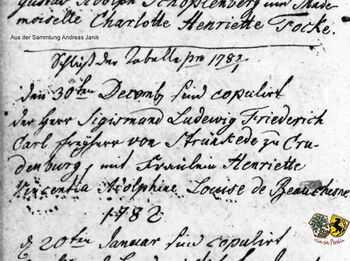 Gustav Adolph Schopplenberg und Made-
moiselle Charlotte Henriette Focke.
Aus der Sammlung Andreas Janik
Schluß der Tabelle pro 1781.
den 30ten Decemb sind copulirt
der Herr Sigismund Ludewig Friederich
Carl freyherr von Strunkede zu Cru-
denburg, und Fräulein Henriette
Vincentia Adolphine Louise de Beauchesne
1782
d 20ten Januar sind copulirt